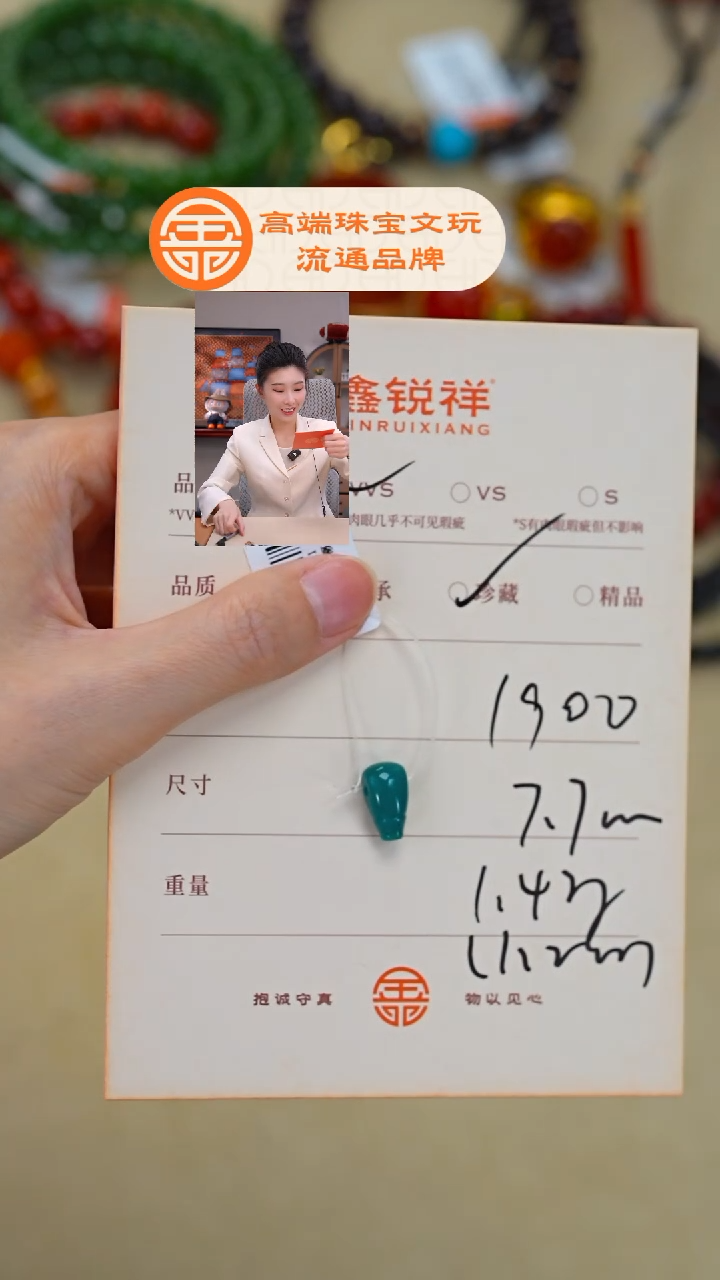 高端珠宝文玩
流通品牌
鑫锐祥
INRUIXIANG
品
VVS
VS
S
*VV
肉眼几乎不可见瑕疵
*S有肉眼瑕疵但不影响
品质
承
珍藏
精品
1900
尺寸
7.7m
重量
1.42g
11.2mm
抱诚守真
物以见心